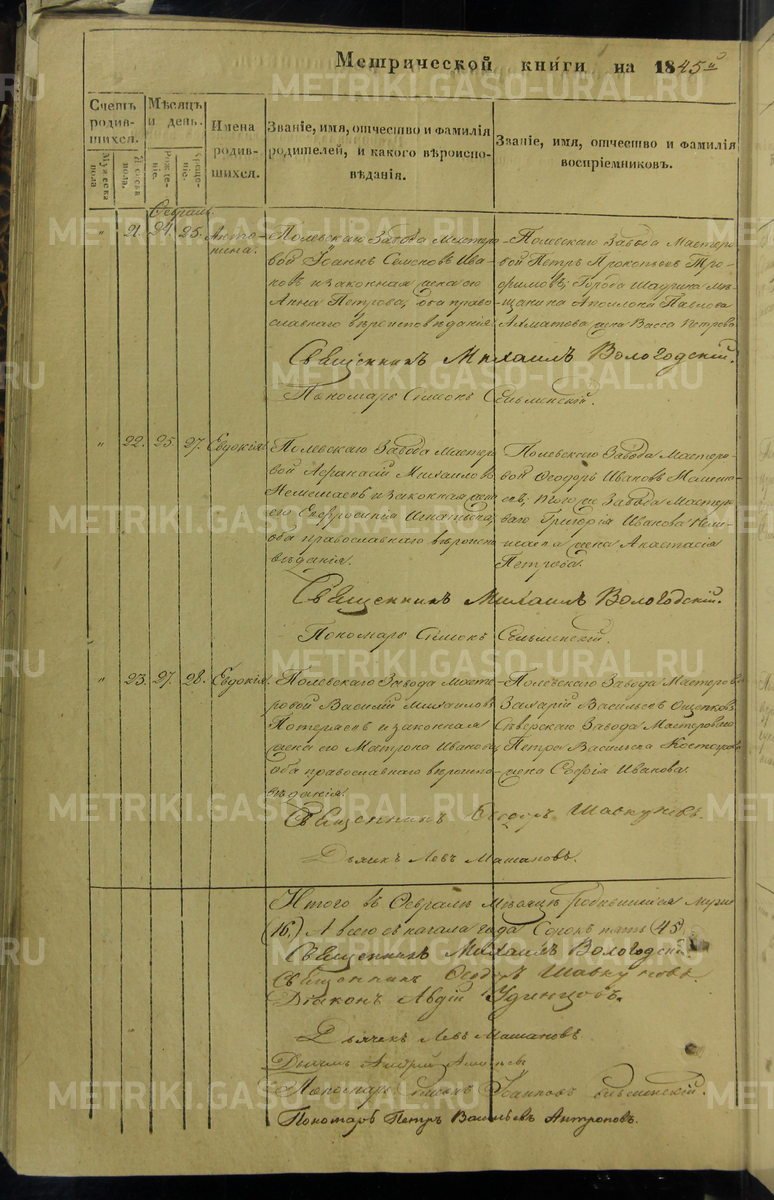 Метрической книги на 1845й
Счетъ родившихся.
Мужеска пола
Женска пола.
Мѣсяцъ и день.
Рожденіе.
Крещеніе.
Имена родившихся.
Званіе, имя, отчество и фамилія родителей, и какого вѣроисповѣданія.
Званіе, имя, отчество и фамилія воспріемниковъ.
Февраль.
" 21. 24. 25. Антонина.
Полевскаго Завода Мастеро
вой Іоаннъ Семеновъ Ива
новъ и законная жена его
Анна Петрова, оба право
славнаго вѣроисповѣданія.
Полевскаго Завода Мастеро
вой Петръ Прокопьевъ Тро
фимовъ; Города Шадрина Мѣ
щанина Павлова
Ахматова жена Васса Петрова
Священникъ Михаилъ Вологодскій.
Пономарь Симонъ
" 22. 25. 27. Евдокія.
Полевскаго Завода Мастеро
вой Афанасій Михайловъ
и законная жена
его Евфросинія Игнатьева,
оба православнаго вѣроиспо
вѣданія.
Полевскаго Завода Мастеро
вой Ѳеодоръ Ивановъ
того же Завода Мастеро
ваго Григорія Иванова
жена Анастасія
Петрова.
Священникъ Михаилъ Вологодскій.
Пономарь Симонъ
" 23. 27. 28. Евдокія.
Полевскаго Завода Масте
ровой Василій Михайловъ
Потеряевъ и законная
жена его Матрона Иванова,
оба православнаго вѣроиспо
вѣданія.
Полевскаго Завода Мастеров.
Захарій Васильевъ
Сѣверскаго Завода Мастероваго
Петра Васильева
жена Софія Иванова.
Священникъ Ѳеодоръ Шавкуновъ.
Дьячекъ Левъ Машановъ.
Итого въ Февралѣ Мѣсяцѣ родившихся
(16.) А всего съ начала года Сорокъ пять (45)
Священникъ Михаилъ Вологодскій
Священникъ Ѳеодоръ Шавкуновъ.
Діаконъ Авдій Удинцовъ.
Дьячекъ Левъ Машановъ.
Дьячекъ Андрей
Пономарь Симонъ Іоанновъ
Пономарь Петръ Васильевъ Антроповъ.
METRIKI.GASO-URAL.RU